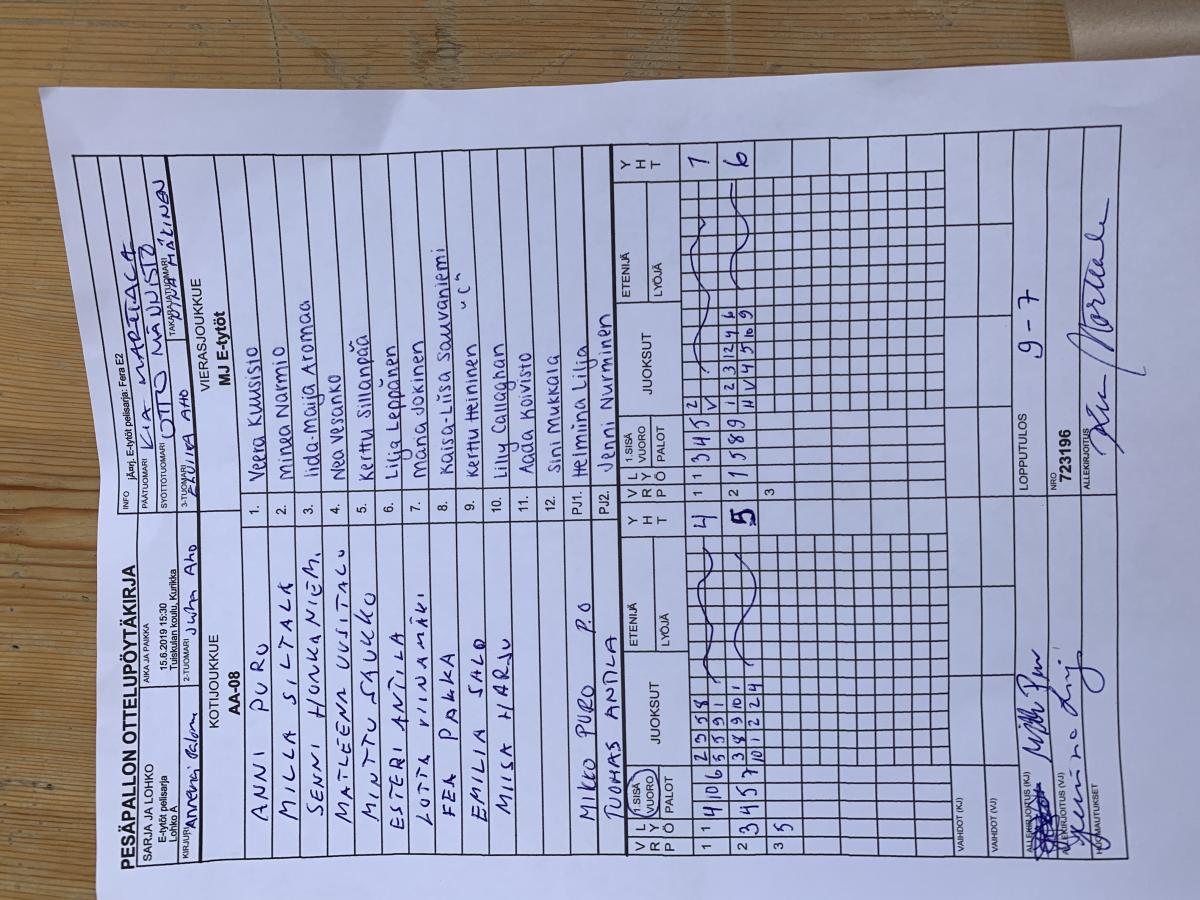 PESÄPALLON OTTELUPÖYTÄKIRJA
SARJA JA LOHKO
E-tytöt pelisarja
Lohko A
AIKA JA PAIKKA
15.6.2019 15:30
Tuiskulan koulu, Kurikka
INFO jÄorj. E-tytöt pelisarja: Fera E2
PÄÄTUOMARI KIA MARTTALA
SYÖTTÖTUOMARI OTTO MÄNNISTÖ
KIRJURI
2-TUOMARI Juha Aho
3-TUOMARI AHO
TAKARAJATUOMARI MÄKINEN
KOTIJOUKKUE
AA-08
VIERASJOUKKUE
MJ E-tytöt
ANNI PURO 1. Veera Kuusisto
MILLA SILTALA 2. Minea Narmio
SENNI HONKANIEMI 3. Iida-Maija Aromaa
MATLEENA UUSITALO 4. Nea Vesanko
MINTTU SAUKKO 5. Kerttu Sillanpää
ESTERI ANTILA 6. Lilja Leppänen
LOTTA VIINAMÄKI 7. Maria Jokinen
FEA PAKKA 8. Kaisa-Liisa Sauvaniemi
EMILIA SALO 9. Kerttu Heininen "C"
MIISA HARJU 10. Lilly Callaghan
11. Aada Koivisto
12. Sini Mukkala
MIKKO PURO P.O PJ1. Helmiina Lilja
TUOMAS ANTILA PJ2. Jenni Nurminen
V R L Y P Ö 1.SISÄ VUORO PALOT JUOKSUT ETENIJÄ LYÖJÄ Y H T V R L Y P Ö 1.SISÄ VUORO PALOT JUOKSUT ETENIJÄ LYÖJÄ Y H T
1 1 4 10 6 2 3 5 8 4 1 1 3 4 5 2 1
5 5 9 1 V
2 3 4 5 7 3 8 9 10 1 5 2 1 5 8 9 1 2 3 12 4 6 6
10 1 2 2 4 H V 4 5 10 9
3 5 3
VAIHDOT (KJ)
VAIHDOT (VJ)
ALLEKIRJOITUS (KJ)
ALLEKIRJOITUS (VJ)
HUOMAUTUKSET
LOPPUTULOS 9 - 7
NRO
723196
ALLEKIRJOITUS